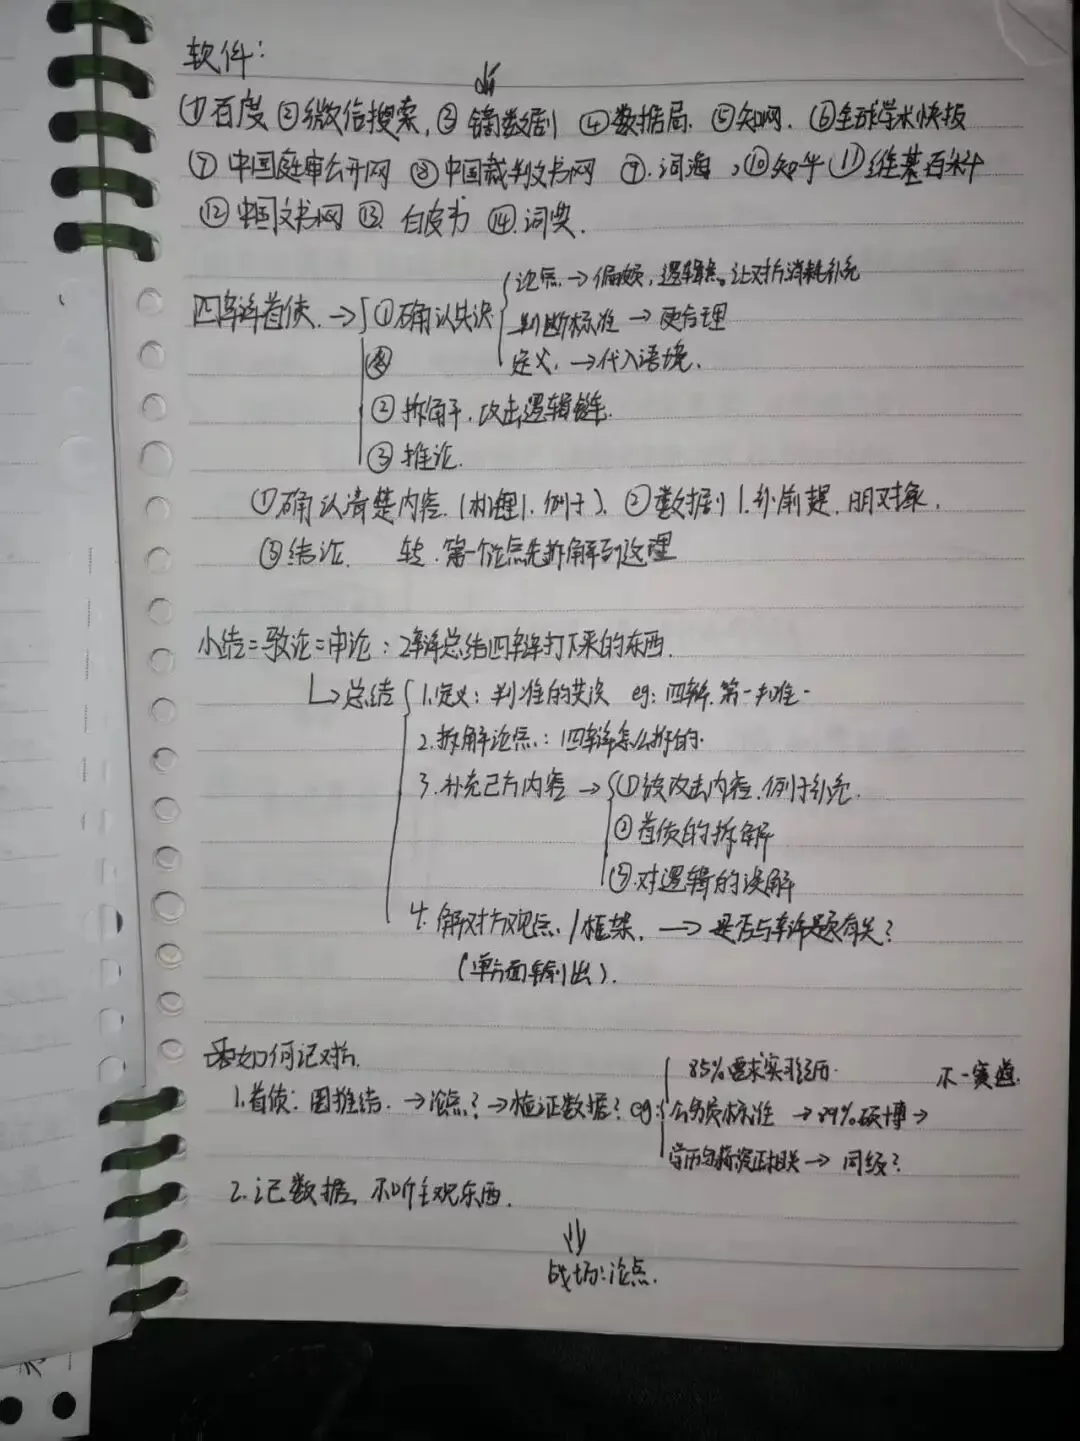 软件：
①百度 ②微信搜索 ③ 镝数据 ④数据局 ⑤知网 ⑥全球学术快报
⑦ 中国庭审公开网 ⑧中国裁判文书网 ⑨词海 ⑩知乎 ⑪维基百科
⑫中国文书网 ⑬ 白皮书 ⑭词典
论点 → 偏颇，逻辑点。让对方消耗补充
四辩首质 → ①确认共识
判断标准 → 更合理
定义 → 代入语境
② 拆解，攻击逻辑链
③ 推论
①确认清楚内容（机理、例子）②数据补前提，明对象
③结论 第一个论点先拆解到这理
小结=驳论=申论：2辩总结四辩打下来的东西
↳总结
1.定义：判准的共识 eg：四辩 第一判准
2.拆解论点：四辩怎么拆的
3.补充己方内容 → ①被攻击内容，例子补充
②首质的拆解
③对逻辑的误解
4.解对方观点/框架 → 是否与辩题有关？
（单方面输出）
如何记对方
85%要求实习经历 不一赛道
1.首质：因推结 →论点？→验证数据？eg：公务员标准 → 89%硕博→
学历与薪资正相关 → 同级？
2.记数据，不听主观东西
⇓
战场：论点